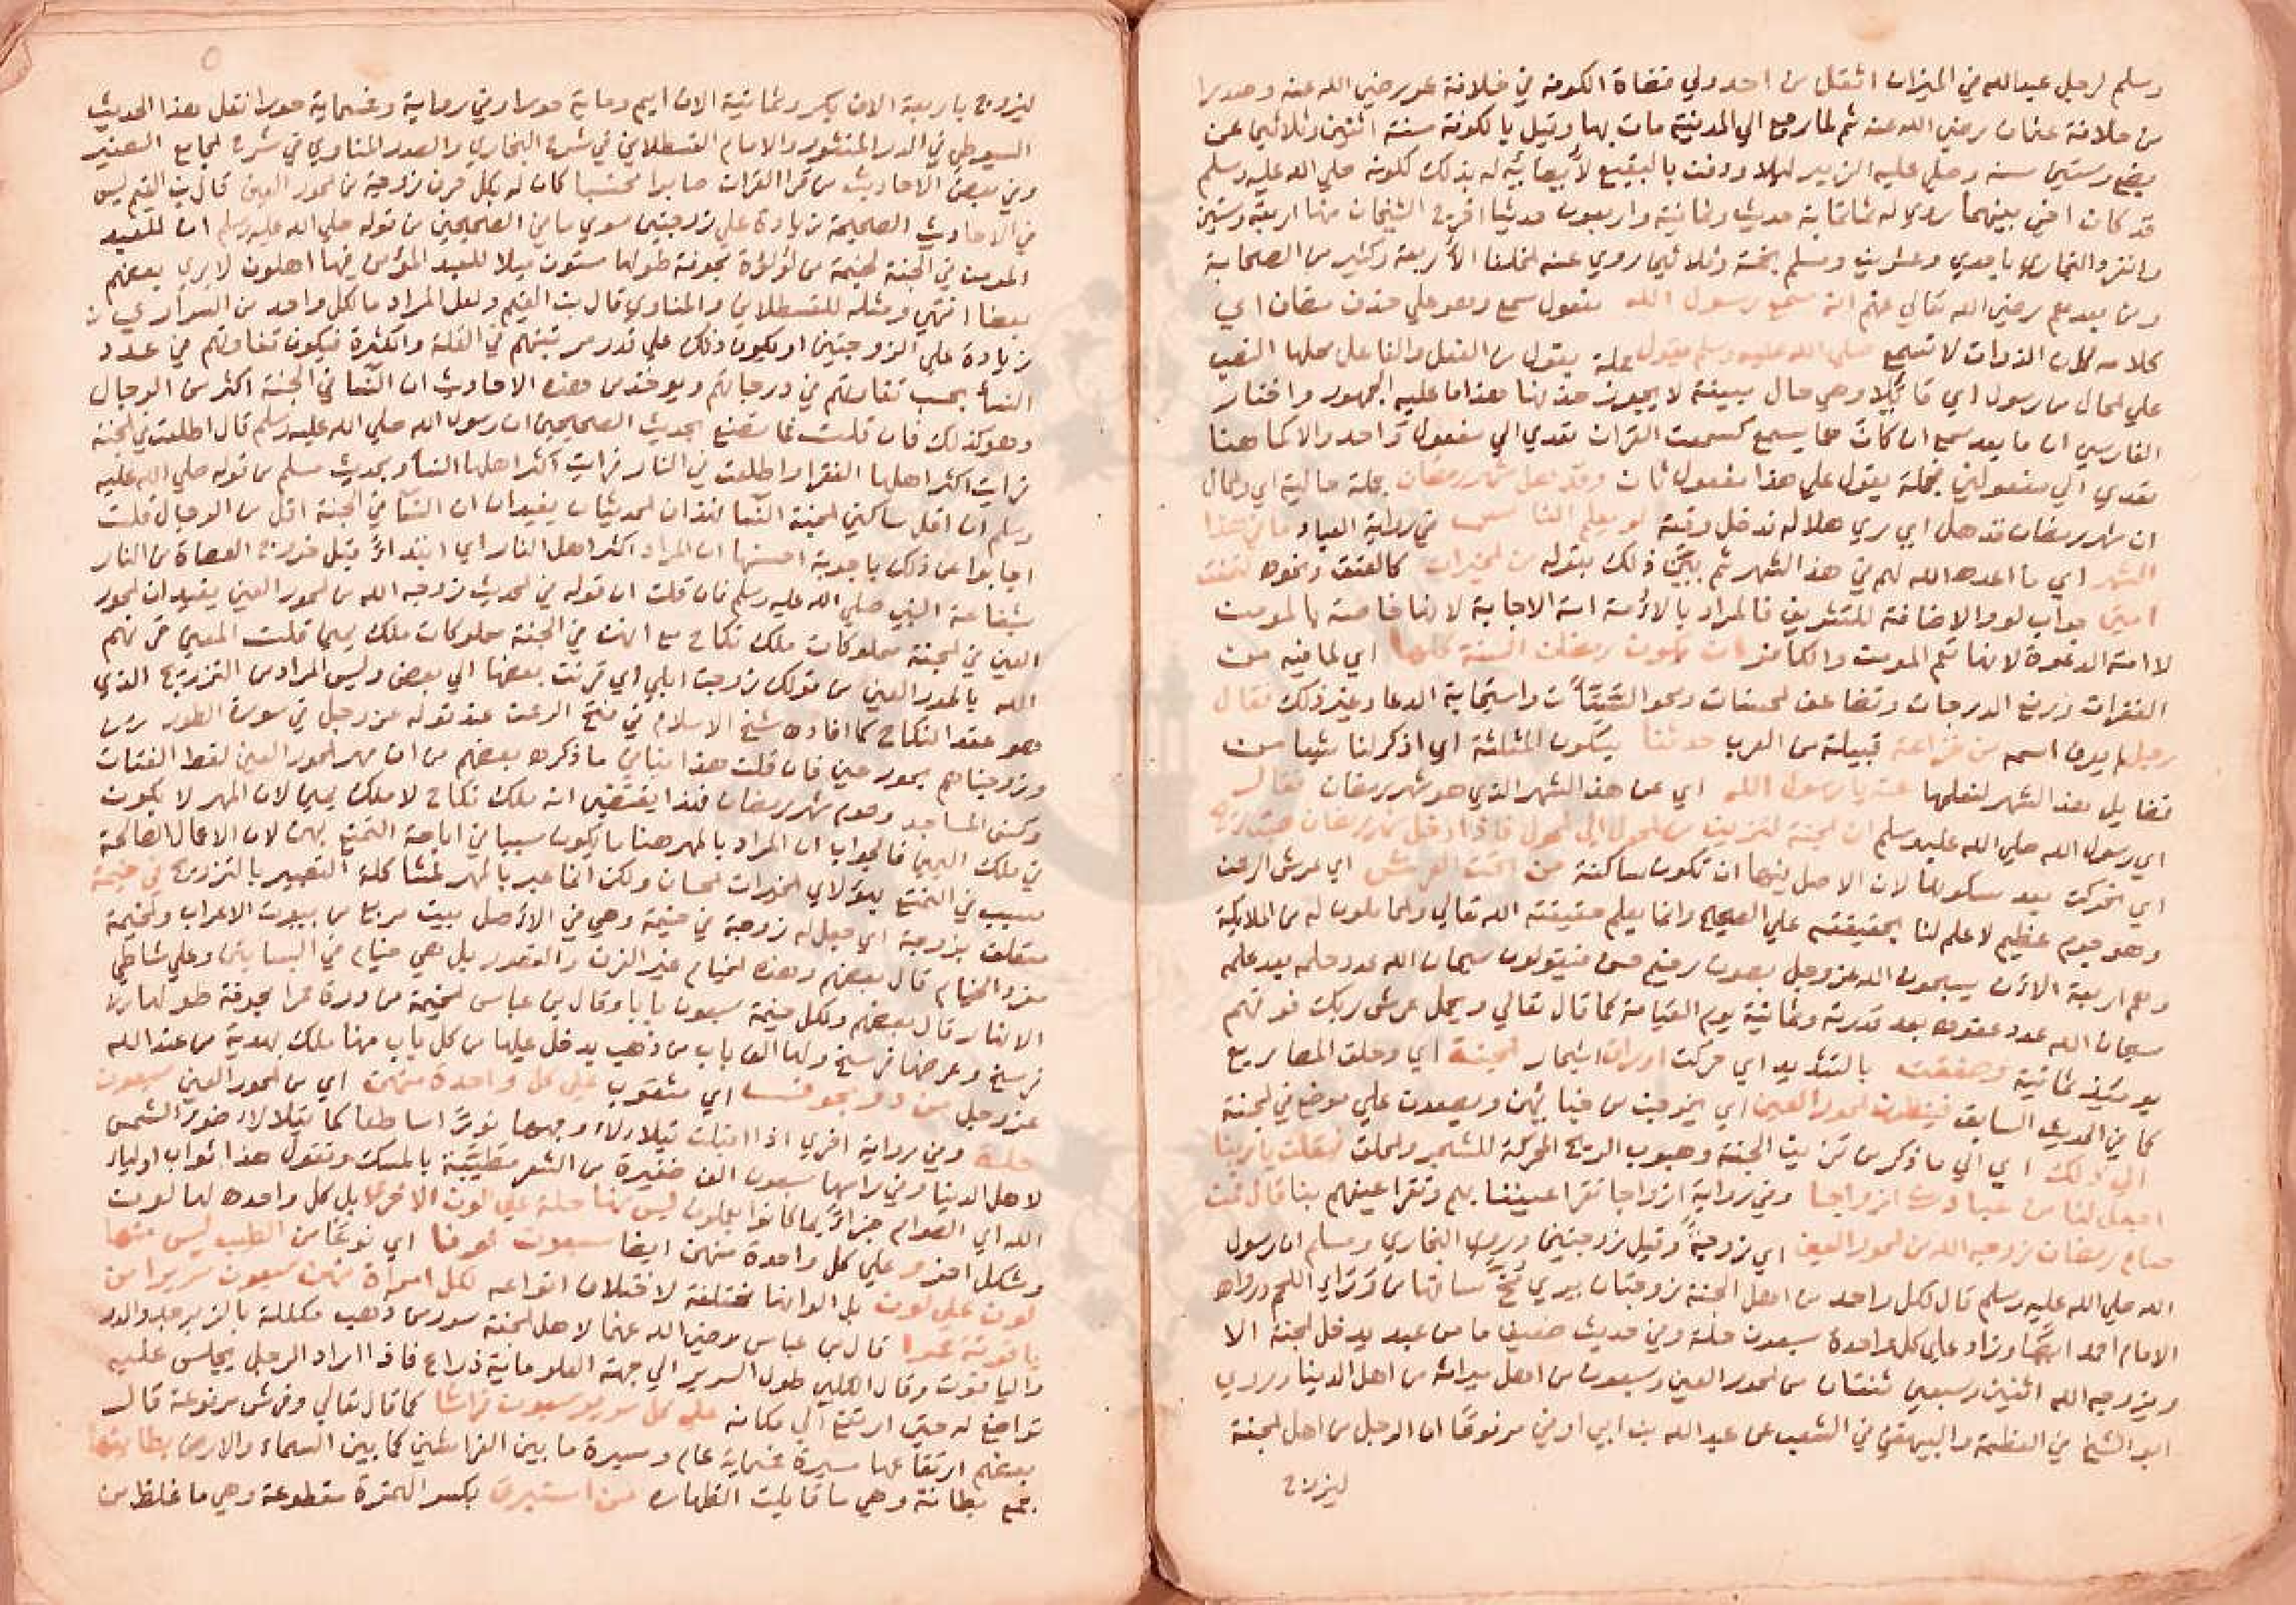 وسلم لرجل عبد الله في الميزان اثقل من احد ولي قضاة الكوفة في خلافة عمر رضي الله عنه وصدرا
من خلافة عثمان رضي الله عنه ثم لما رجع الي المدينة مات بها وقيل بالكوفة سنة اثنتين وثلاثين عن
بضع وستين سنة وصلي عليه الزبير ليلا ودفن بالبقيع لايصائه له بذلك لكونه صلي الله عليه وسلم
قد كان اخي بينهما روي له ثمانماية حديث وثمانية واربعون حديثا اخرج الشيخان منها اربعة وستين
وانفرد البخاري باحدي وعشرين ومسلم بخمسة وثلاثين روي عنه الخلفا الأربعة وكثير من الصحابة
ومن بعدهم رضي الله تعالي عنهم انه سمع رسول الله مفعول سمع وهو علي حذف مضاف اي
كلامه لان الذوات لا تسمع صلي الله عليه وسلم يقول جملة يقول من الفعل والفاعل محلها النصب
علي الحال من رسول اي قائلا وهي حال مبينة لا يجوز حذفها هذا ما عليه الجمهور واختار
الفارسي ان ما بعد سمع ان كان مما يسمع كسمعت القران تعدي الي مفعول واحد والا كما هنا
تعدي الي مفعولين فجملة يقول علي هذا مفعول ثان وقد اهل شهر رمضان جملة حالية اي والحال
ان شهر رمضان قد هل اي ري هلاله ندخل وقته لو يعلم الناس في رواية العباد ما في هذا
الشهر اي ما اعده الله لهم في هذا الشهر ثم بين ذلك بقوله من الخيرات كالعتق ونحوه لتمنت
امتي جواب لو والاضافة للتشريف فالمراد بالأمة امة الاجابة لانها خاصة بالمومن
لا امة الدعوة لانها تعم المومن والكافر ان يكون رمضان السنة كلها اي لما فيه من
الغفران ورفع الدرجات وتضاعف الحسنات ومحو السيئات واستجابة الدعا وغير ذلك فقال
رجل لم يعرف اسمه من خزاعة قبيلة من العرب حدثنا بسكون المثلثة اي اذكر لنا شيئا من
فضايل هذا الشهر لنعلمها عنه يا رسول الله اي عن هذا الشهر الذي هو شهر رمضان فقال
اي رسول الله صلي الله عليه وسلم ان الجنة لتزين من الحول الي الحول فاذا دخل شهر رمضان هبت ريح
اي تحركت بعد سكونها لان الاصل فيها ان تكون ساكنة من تحت العرش اي عرش الرحمن
وهو جرم عظيم لا علم لنا بحقيقته علي الصحيح وانما يعلم حقيقته الله تعالي والحاملون له من الملايكة
وهم اربعة الآن يسبحون الله عز وجل بصوت رفيع حسن فيقولون سبحان الله عدد حلمه بعد علمه
سبحان الله عدد عفوه بعد قدرته وثمانية يوم القيامة كما قال تعالي ويحمل عرش ربك فوقهم
يومئذ ثمانية وصفقت بالتشديد اي حركت اوراق اشجار الجنة اي وحلق المصاريع
كما في الحديث السابق فينظرن الحور العين اي يخرجن من خيامهن ويصعدن علي موضع في الجنة
الي ذلك اي الي ما ذكر من تزيين الجنة وهبوب الريح المحركة للشجر والحلق فيقلن يا ربنا
اجعل لنا من عبادك ازواجا وفي رواية ازواجا تقر اعيننا بهم وتقر اعينهم بنا قال فمن
صام رمضان زوجه الله من الحور العين اي زوجة وقيل زوجتين وروي البخاري ومسلم ان رسول
الله صلي الله عليه وسلم قال لكل واحد من اهل الجنة زوجتان يري مخ ساقها من وراي اللحم ورواه
الامام احمد ايضا وزاد علي كل واحدة سبعون حلة وفي حديث ضعيف ما من عبد يدخل الجنة الا
ويزوجه الله اثنتين وسبعين ثنتان من الحور العين وسبعون من اهل ميراثه من اهل الدنيا وروي
ابو الشيخ في العظمة والبيهقي في الشعب عن عبد الله بن ابي اوفي مرفوعا ان الرجل من اهل الجنة
ليزوج
ليزوج باربعة الاف بكر وثمانية الاف ايم وماية حورا وفي رواية وخمسماية حورا نقل هذا الحديث
السيوطي في الدر المنثور والامام القسطلاني في شرح البخاري والصدر المناوي في شرح الجامع الصغير
وفي بعض الاحاديث من قرا القران صابرا محتسبا كان له بكل حرف زوجة من الحور العين قال بن القيم ليس
في الاحاديث الصحيحة زيادة علي زوجتين سوي ما في الصحيحين من قوله صلي الله عليه وسلم ان للعبد
المومن في الجنة لخيمة من لؤلؤة مجوفة طولها ستون ميلا للعبد المؤمن فيها اهلون لا يري بعضهم
بعضا انتهي ومثله للقسطلاني والمناوي قال بن القيم ولعل المراد ما لكل واحد من السراري
زيادة علي الزوجتين او يكون ذلك علي قدر مرتبتهم في القلة والكثرة فيكون تفاوتهم في عدد
النسا بحسب تفاوتهم في درجاتهم ويوخذ من هذه الاحاديث ان النسا في الجنة اكثر من الرجال
وهو كذلك فان قلت فما تصنع بحديث الصحيحين ان رسول الله صلي الله عليه وسلم قال اطلعت في الجنة
فرايت اكثر اهلها الفقرا واطلعت في النار فرايت اكثر اهلها النسا وبحديث مسلم من قوله صلي الله عليه
وسلم ان اقل ساكني الجنة النسا فهذان الحديثان يفيدان ان النسا في الجنة اقل من الرجال قلت
اجابوا عن ذلك باجوبة احسنها ان المراد اكثر اهل النار اي ابتداءً قبل خروج العصاة من النار
بشفاعة النبي صلي الله عليه وسلم فان قلت ان قوله في الحديث زوجه الله من الحور العين يفيد ان الحور
العين في الجنة مملوكات ملك نكاح مع انهن في الجنة مملوكات ملك يمين قلت المعني قرنهم
الله بالحور العين من قولك زوجت ابلي اي قرنت بعضها الي بعض وليس المراد من التزويج الذي
هو عقد النكاح كما افاده شيخ الاسلام في فتح الرحمن عند قوله عز وجل في سورة الطور
وزوجناهم بحور عين فان قلت هذا ينافي ما ذكره بعضهم من ان مهر الحور العين لقط الفتات
وكنس المساجد وصوم شهر رمضان فهذا يقتضي انه ملك نكاح لا ملك يمين لان المهر لا يكون
في ملك اليمين فالجواب ان المراد بالمهر هنا ما يكون سببا في اباحة التمتع بهن لان الاعمال الصالحة
سبب في التمتع بهؤلاي الخيرات الحسان ولكن انما عبر بالمهر لمشاكلة التعبير بالتزويج في خيمة
متعلق بزوجة اي جعل له زوجة في خيمة وهي في الأصل بيت مربع من بيوت الاعراب والخيمة
مفرد الخيام قال بعضهم وهذه الخيام غير الغرف والقصور بل هي خيام في البساتين وعلي شاطي
الانهار قال بعضهم ولكل خيمة سبعون بابا وقال بن عباس الخيمة من درة حمرا مجوفة طولها
فرسخ وعرضها فرسخ ولها الف باب من ذهب يدخل عليها من كل باب منها ملك بهدية من عند الله
عز وجل من در مجوف اي مثقوب علي كل واحدة منهن اي من الحور العين سبعون
حلة وفي رواية اخري اذا اقبلت يتلألأ وجهها نورا ساطعا كما يتلالا ضوء الشمس
لاهل الدنيا وفي راسها سبعون الف ضفيرة من الشعر مطيبة بالمسك وتقول هذا ثواب اولياء
الله اي الصوام جزاءً بما كانوا يعملون ليس منها حلة علي لون الاخري بل كل واحدة لها لون
وشكل اخر وعلي كل واحدة منهن ايضا سبعون لونا اي نوعا من الطيب ليس منها
لون علي لون بل الوانها مختلفة لاختلاف انواعه لكل امراة منهن سبعون سريرا من
ياقوتة حمرا قال بن عباس رضي الله عنهما لاهل الجنة سرر من ذهب مكللة بالزبرجد والدر
والياقوت وقال الكلبي طول السرير الي جهة العلو ماية ذراع فاذا اراد الرجل يجلس عليه
تواضع له حتي ارتفع الي مكانه علي كل سرير سبعون فراشا كما قال تعالي وفرش مرفوعة قال
بعضهم ارتفاعها مسيرة خمسماية عام ومسيرة ما بين الفراشين كما بين السماء والارض بطاينها
جمع بطانة وهي ما قابلت الظهاره من استبرق بكسر الهمزة مقطوعة وهي ما غلظ من